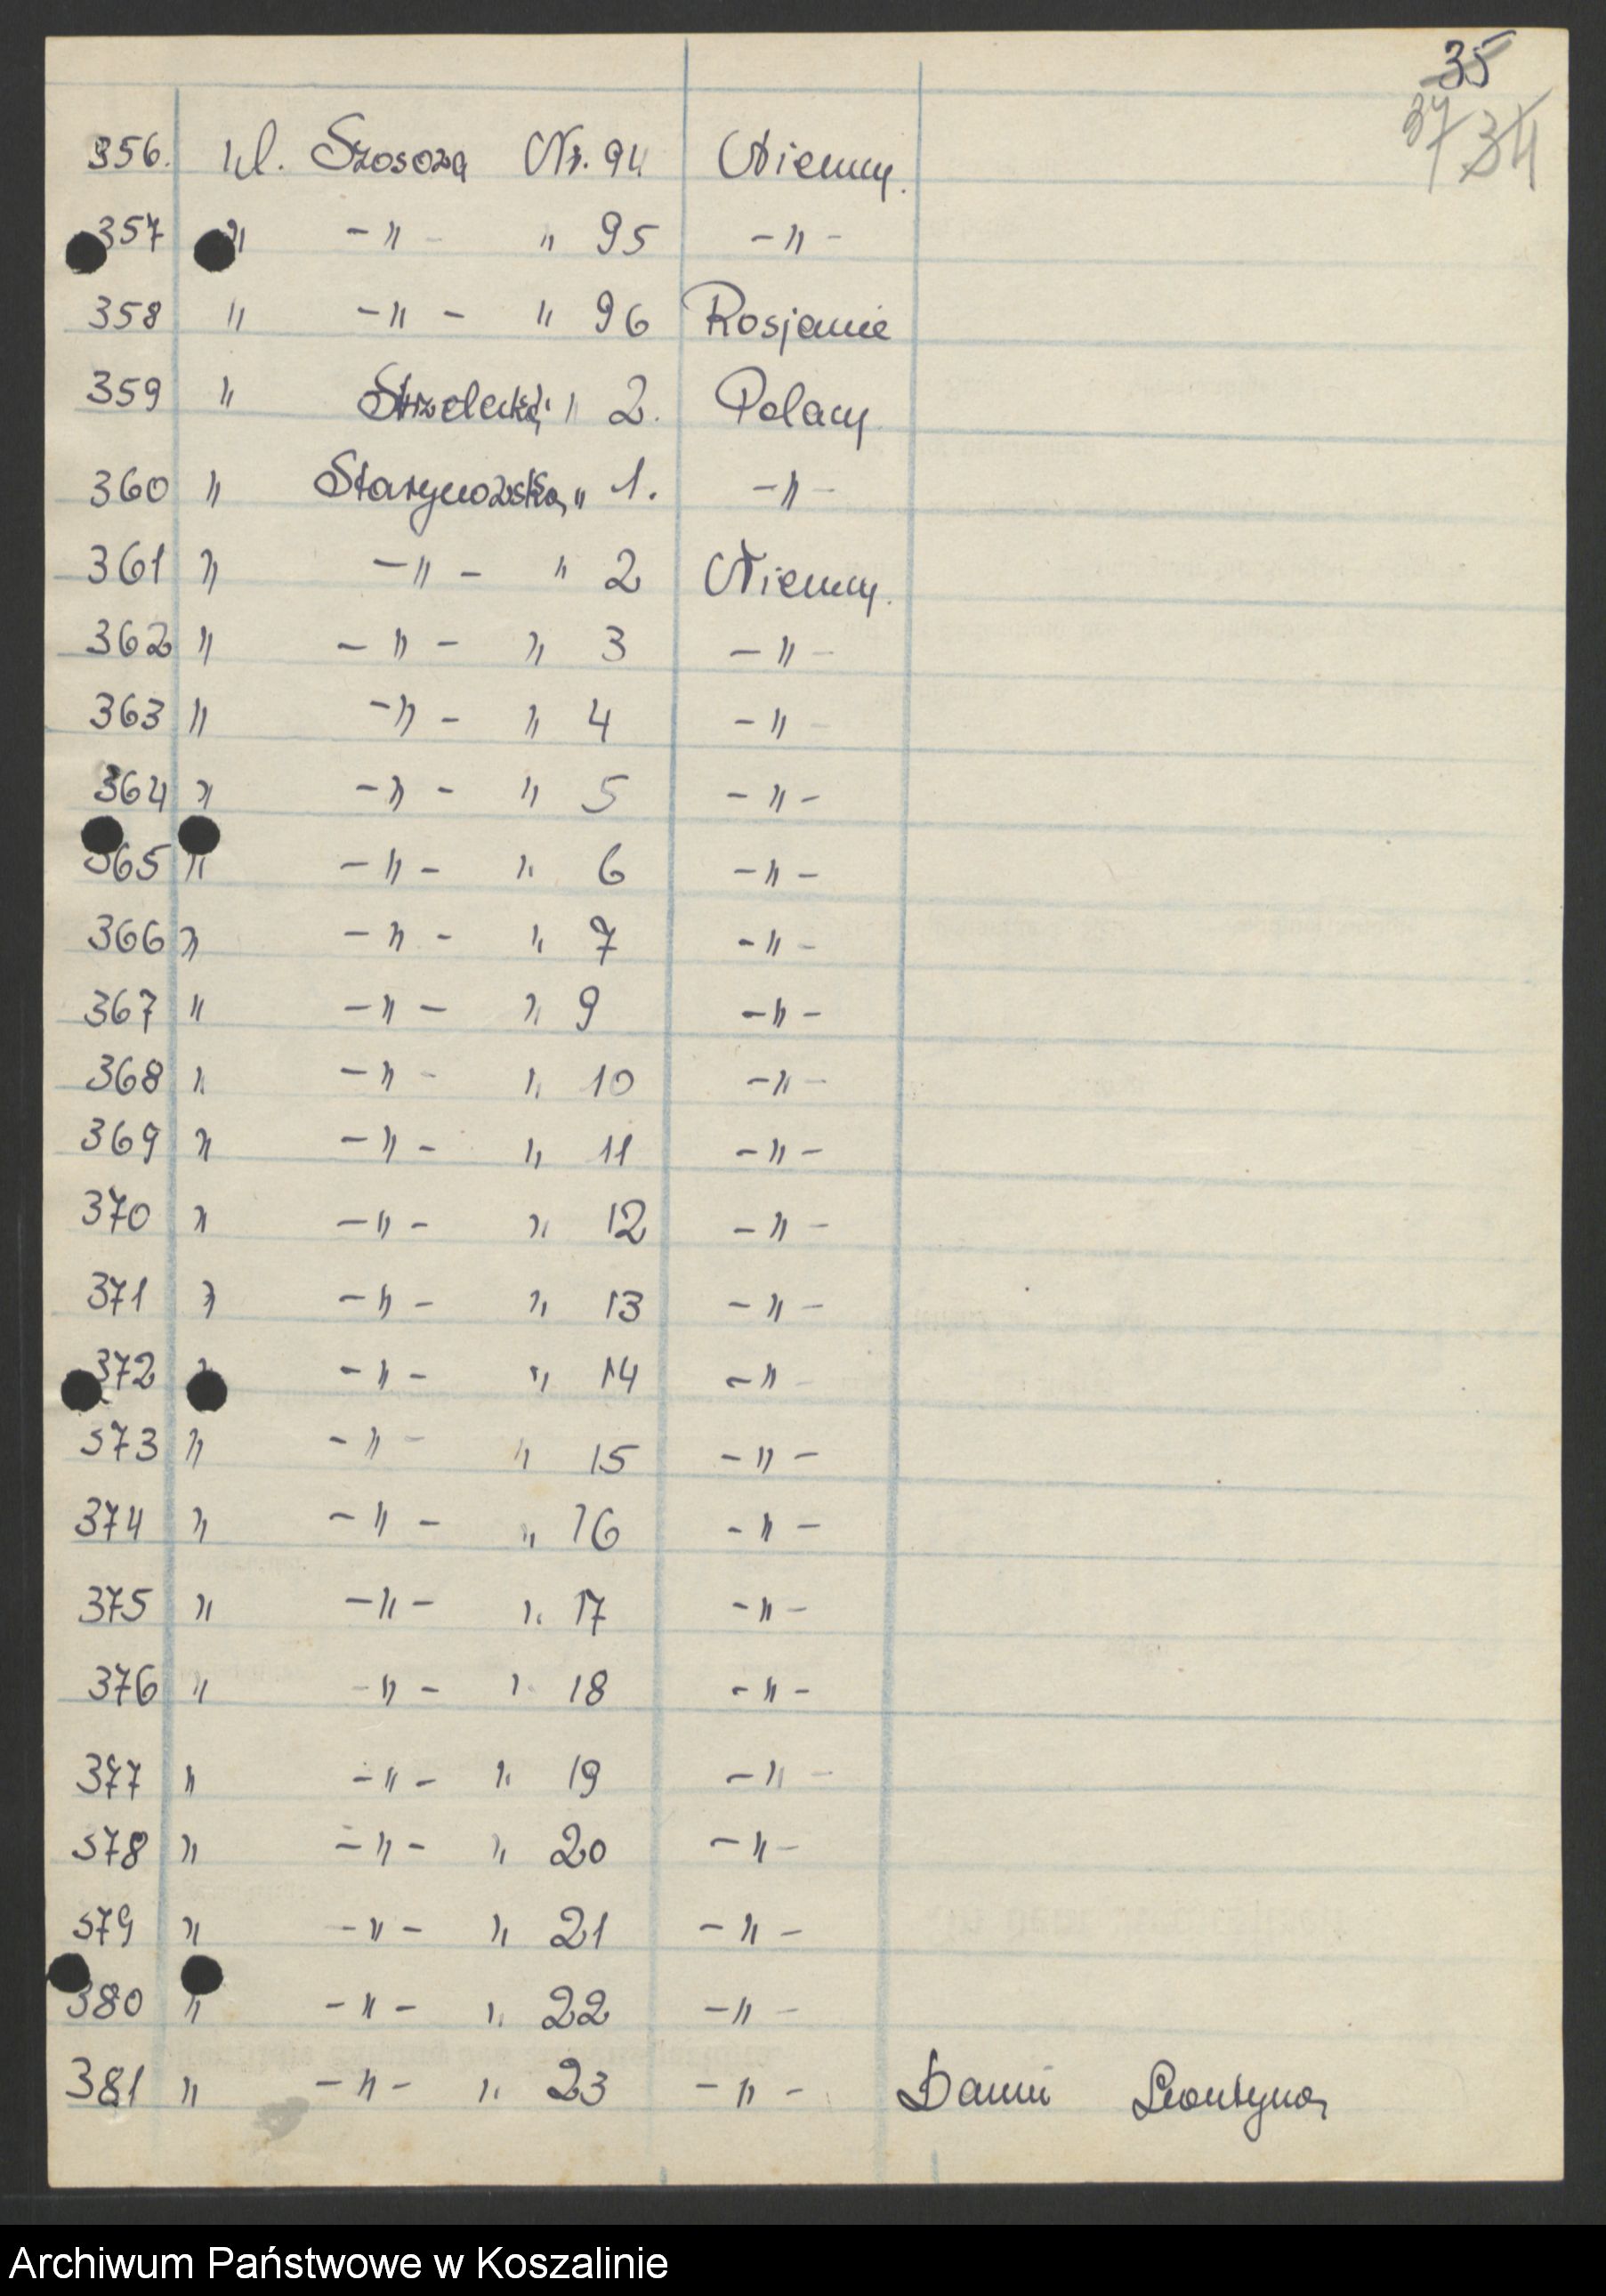 35
37 34
356. Ul. Szosowa Nr. 94 Niemcy.
357 " -"- " 95 -"-
358 " -"- " 96 Rosjanie
359 " Strzelecka " 2. Polacy
360 " " 1. -"-
361 " -"- " 2 Niemcy.
362 " -"- " 3 -"-
363 " -"- " 4 -"-
364 " -"- " 5 -"-
365 " -"- " 6 -"-
366 " -"- " 7 -"-
367 " -"- " 9 -"-
368 " -"- " 10 -"-
369 " -"- " 11 -"-
370 " -"- " 12 -"-
371 " -"- " 13 -"-
372 " -"- " 14 -"-
373 " -"- " 15 -"-
374 " -"- " 16 -"-
375 " -"- " 17 -"-
376 " -"- " 18 -"-
377 " -"- " 19 -"-
378 " -"- " 20 -"-
379 " -"- " 21 -"-
380 " -"- " 22 -"-
381 " -"- " 23 -"-
Archiwum Państwowe w Koszalinie